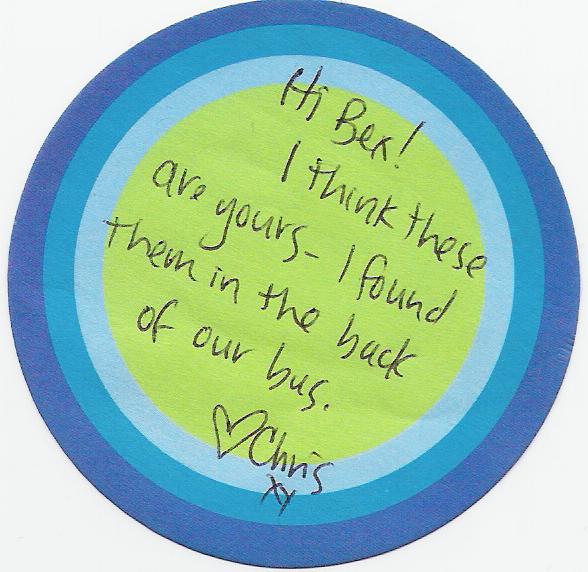 Hi Bex!
I think these
are yours - I found
them in the back
of our bus.
♡Chris
xy